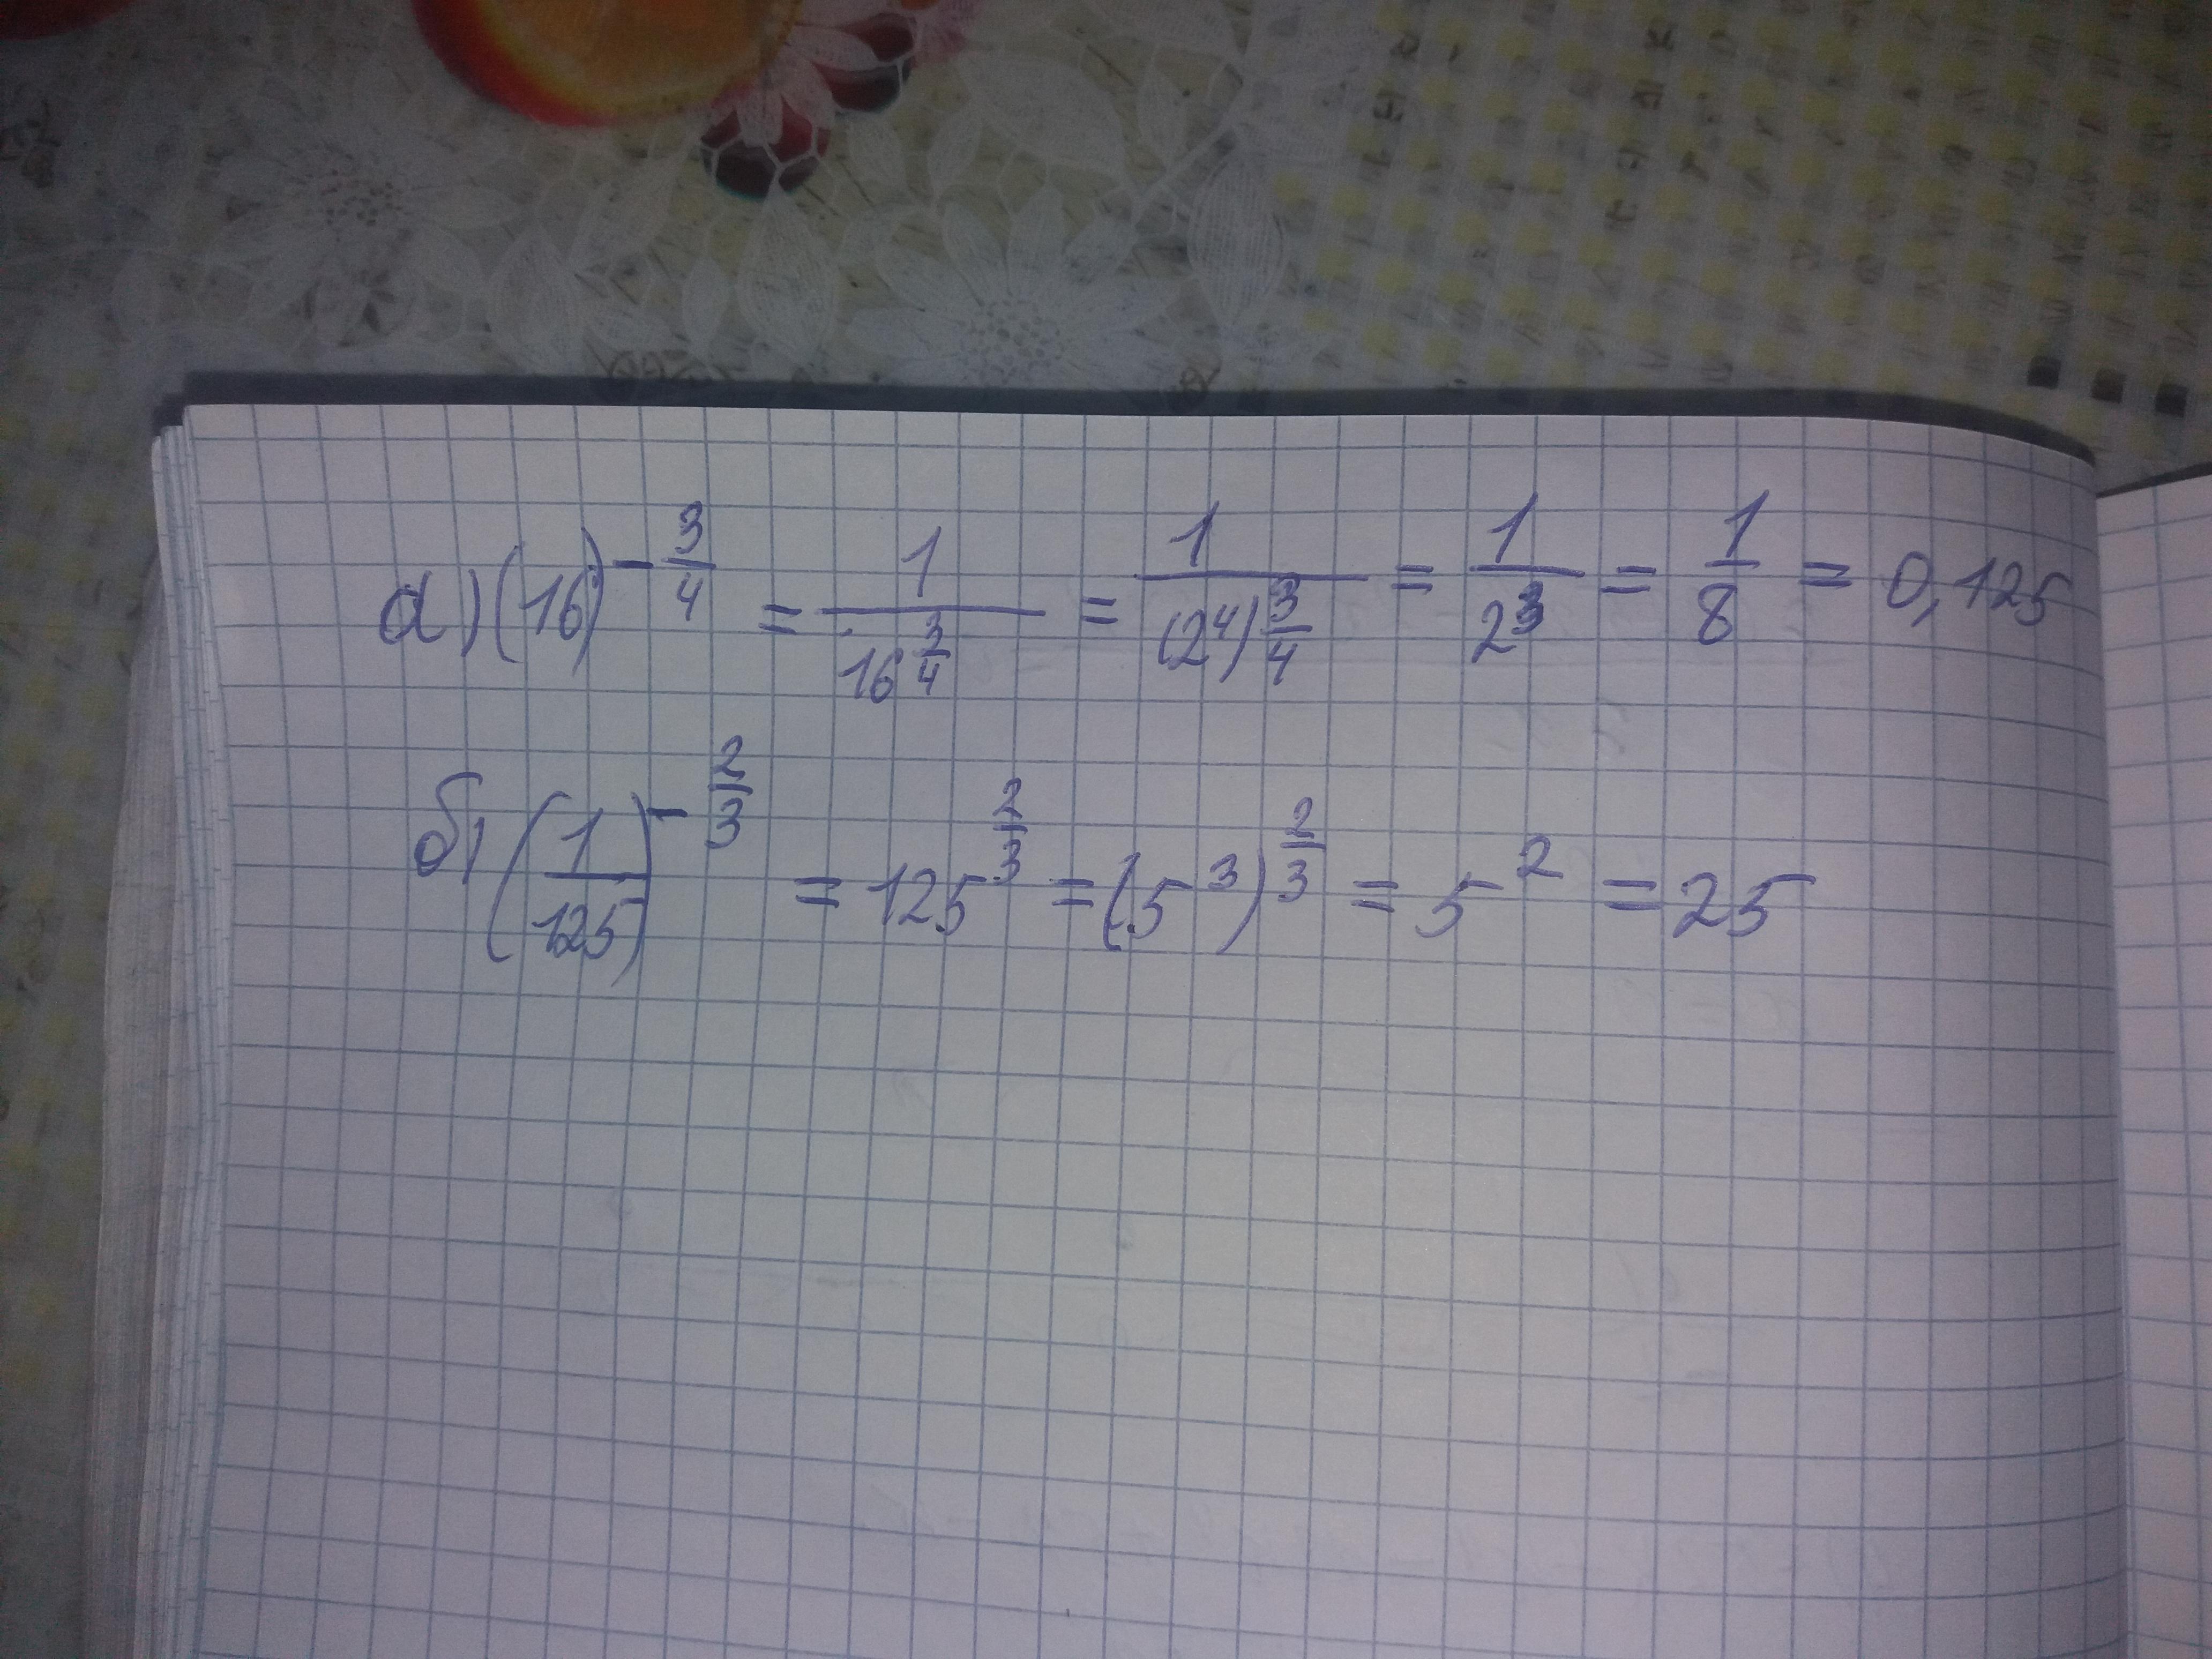 а) (16)^{-\frac{3}{4}} = \frac{1}{16^{\frac{3}{4}}} = \frac{1}{(2^4)^{\frac{3}{4}}} = \frac{1}{2^3} = \frac{1}{8} = 0,125
б) (\frac{1}{125})^{-\frac{2}{3}} = 125^{\frac{2}{3}} = (5^3)^{\frac{2}{3}} = 5^2 = 25